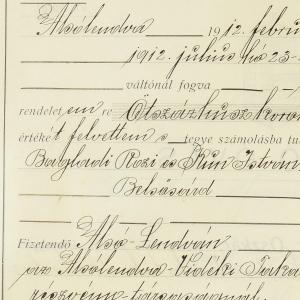 Alsólendva 1912. febru
1912. julius hó 23-
váltónál fogva
rendeletem re Ötszázhusz koron
értékét felvettem s tegye számolásba tu
Bagladi Rozi és Kún István
Belsősárd
Fizetendő Alsó-Lendván
az Alsólendva-Vidéki Taka
részvény-társaságnál